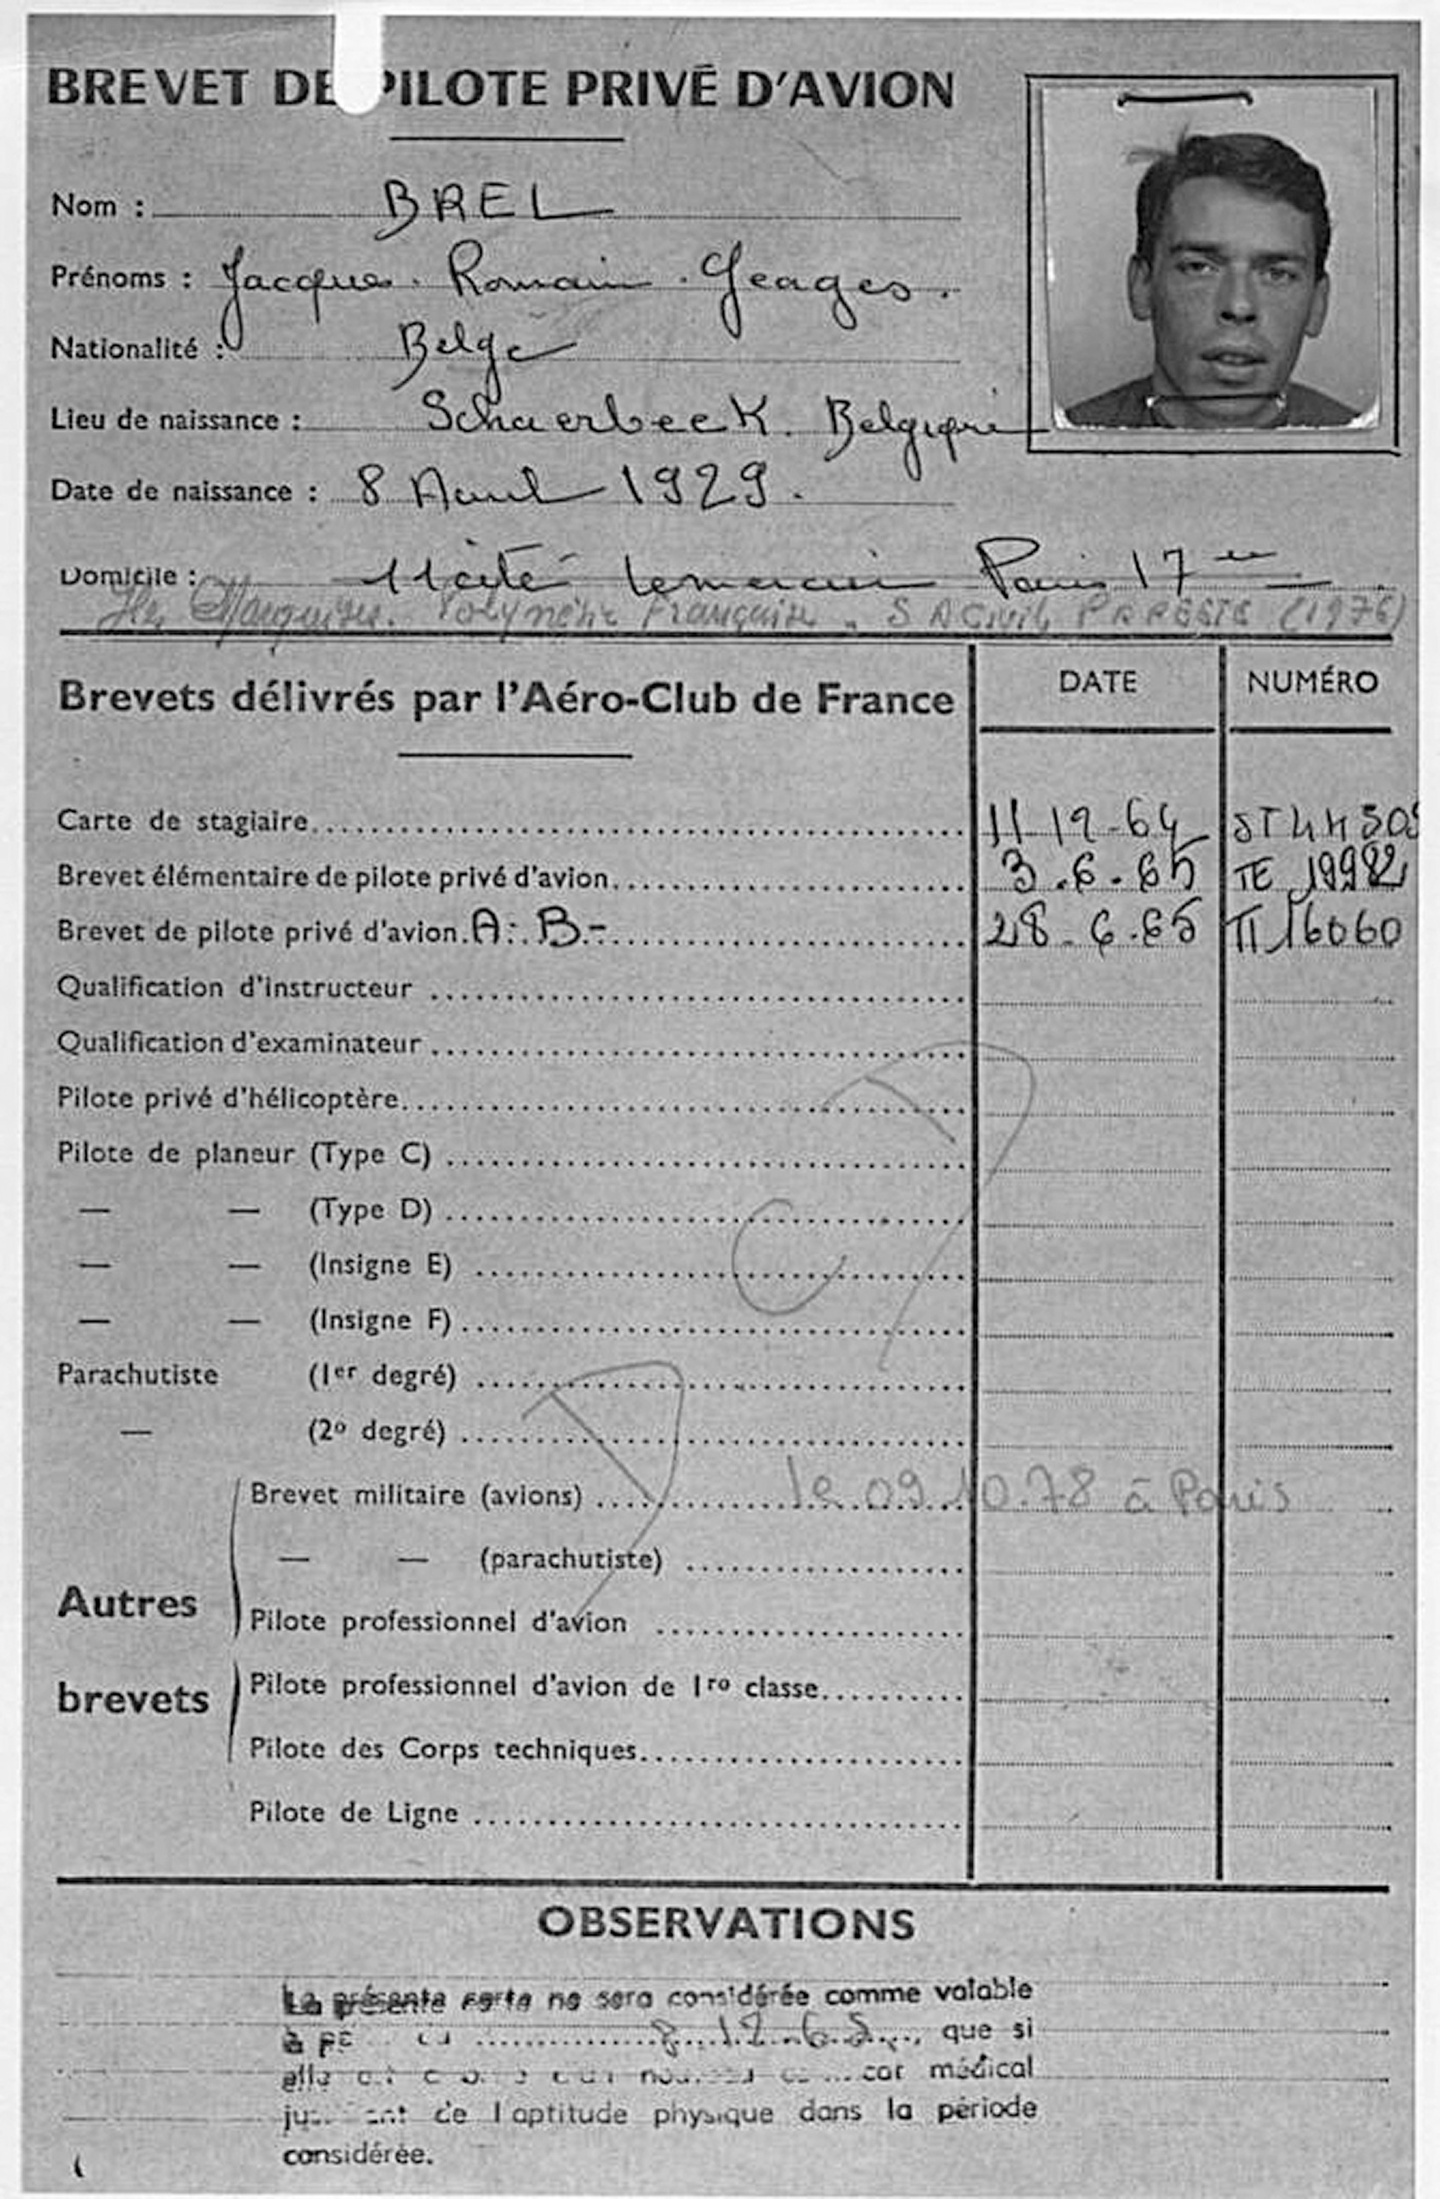 BREVET DE PILOTE PRIVÉ D'AVION
Nom : BREL
Prénoms : Jacques. Romain. Georges.
Nationalité : Belge
Lieu de naissance : Schaerbeek. Belgique
Date de naissance : 8 Avril 1929.
Domicile : 11 cité Lemercier Paris 17
Iles Marquises. Polynésie Française. S A Civil, PAPEETE (1976)
Brevets délivrés par l'Aéro-Club de France DATE NUMÉRO
Carte de stagiaire 11-12-64 ST 44 50
Brevet élémentaire de pilote privé d'avion 3.6.65 TE 19982
Brevet de pilote privé d'avion. A. B.- 28.6.65 TT 16060
Qualification d'instructeur
Qualification d'examinateur
Pilote privé d'hélicoptère
Pilote de planeur (Type C)
— — (Type D)
— — (Insigne E)
— — (Insigne F)
Parachutiste (1er degré)
— (2º degré)
DCD
Brevet militaire (avions) le 09.10.78 à Paris
— — (parachutiste)
Autres
Pilote professionnel d'avion
brevets
Pilote professionnel d'avion de 1re classe
Pilote des Corps techniques
Pilote de Ligne
OBSERVATIONS
La présente carte ne sera considérée comme valable
à 8.12.65, que si
elle médical
de l'aptitude physique dans la période
considérée.